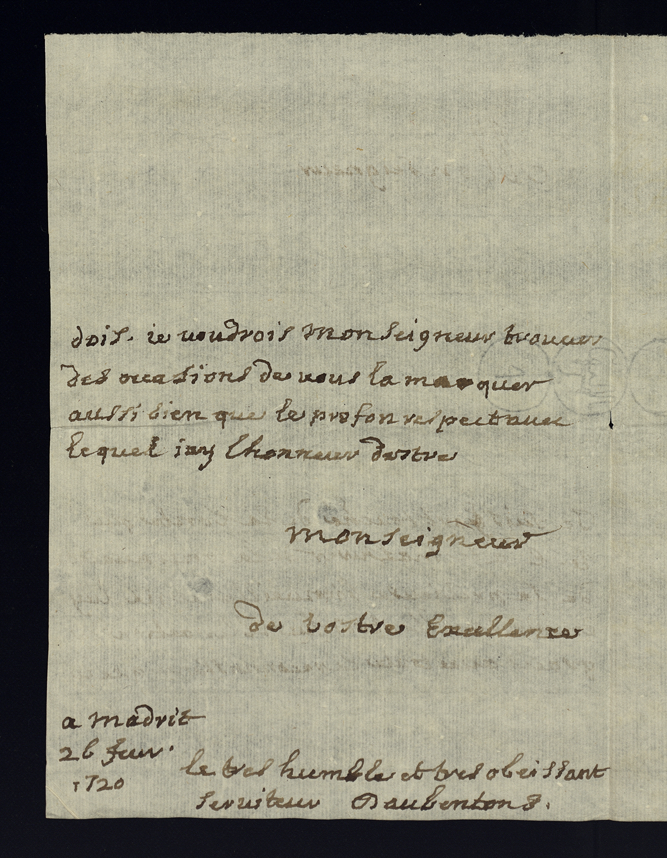 dois. ie uoudrois monseigneur trouuer
des occasions de uous la marquer
aussi bien que le profon respect auec
lequel iay lhonneur destre
monseigneur
de vostre Excellence
a madrit
26 feur.
1720
le tres humble et tres obeissant
seruiteur Daubenton